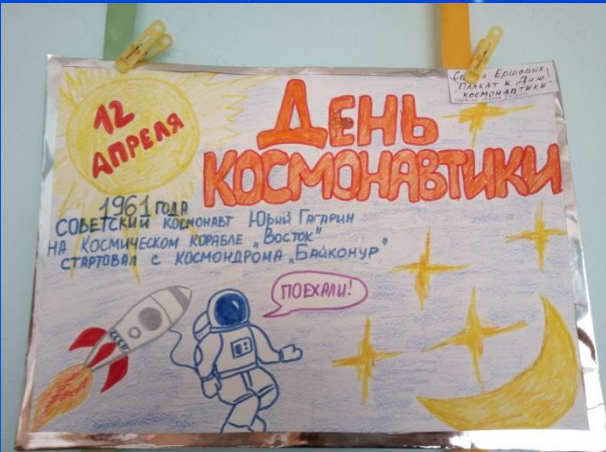 12
АПРЕЛЯ
ДЕНЬ
КОСМОНАВТИКИ
Ершовых
Плакат к Дню
космонавтики!
1961 ГОДА
СОВЕТСКИЙ КОСМОНАВТ ЮРИЙ ГАГАРИН
НА КОСМИЧЕСКОМ КОРАБЛЕ „ВОСТОК"
СТАРТОВАЛ С КОСМОНДРОМА „БАЙКОНУР"
ПОЕХАЛИ!
СССР